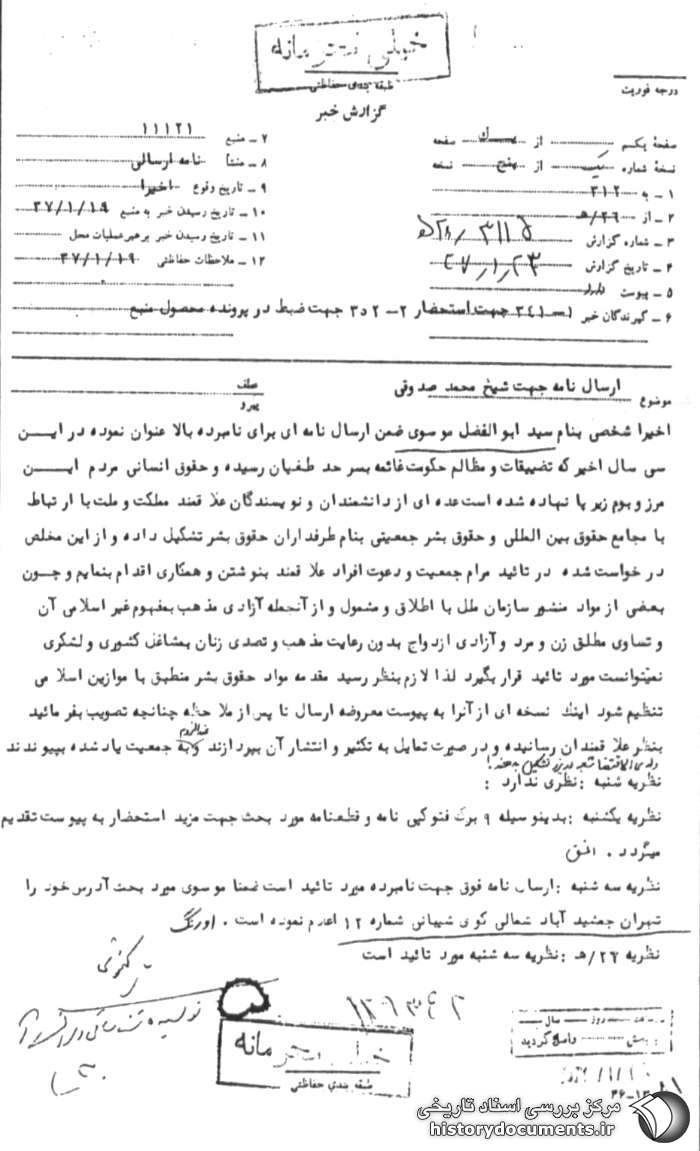 خیلی محرمانه
طبقه بندی حفاظتی
درجه فوریت
گزارش خبر
صفحهٔ یکم از یک صفحه
نسخهٔ شماره یک از پنج نسخه
۱ – به ۳۱۲
۲ – از ۲۶/هـ
۳ – شماره گزارش
۴ – تاریخ گزارش ۳۷/۱/۲۳
۵ – پیوست دارد
۶ – گیرندگان خبر ۱– ۳۴۱ جهت استحضار ۲– ۲ د ۳ جهت ضبط در پرونده محصول منبع
۷ – منبع ۱۱۱۲۱
۸ – منشأ نامه ارسالی
۹ – تاریخ وقوع اخیرا
۱۰ – تاریخ رسیدن خبر به منبع ۳۷/۱/۱۹
۱۱ – تاریخ رسیدن خبر برهبر عملیات محل
۱۲ – ملاحظات حفاظتی ۳۷/۱/۱۹
موضوع ارسال نامه جهت شیخ محمد صدوقی
عطف
پیرو
اخیرا شخصی بنام سید ابوالفضل موسوی ضمن ارسال نامه ای برای نامبرده بالا عنوان نموده در ایـــن
سی سال اخیر که تضییقات و مظالم حکومت غائمه بسر حد طغیان رسیده و حقوق انسانی مردم ایـــن
مرز و بوم زیر پا نهاده شده است عده ای از دانشمندان و نویسندگان علاقمند مملکت و ملت با ارتباط
با مجامع حقوق بین المللی و حقوق بشر جمعیتی بنام طرفداران حقوق بشر تشکیل داده و از این مخلص
درخواست شده در تائید مرام جمعیت و دعوت افراد علاقمند بنوشتن و همکاری اقدام بنمایم و چــون
بعضی از مواد منشور سازمان ملل با اطلاق و مشمول و از آنجمله آزادی مذهب بمفهوم غیر اسلامی آن
و تساوی مطلق زن و مرد و آزادی ازدواج بدون رعایت مذهب و تصدی زنان بمشاغل کشوری و لشکری
نمیتوانست مورد تائید قرار بگیرد لذا لازم بنظر رسید مقدمه مواد حقوق بشر منطبق با موازین اسلامی
تنظیم شود اینك نسخه ای از آنرا به پیوست معروضه ارسال تا پس از ملاحظه چنانچه تصویب بفرمائید
بنظر علاقمندان رسانیده و در صورت تمایل به تکثیر و انتشار آن بپردازند و به جمعیت یاد شده بپیوندند
نظریه شنبه : نظری ندارد :
نظریه یکشنبه : بدینوسیله ۹ برگ فتوکپی نامه و قطعنامه مورد بحث جهت مزید استحضار به پیوست تقدیم
میگردد . افق
نظریه سه شنبه : ارسال نامه فوق جهت نامبرده مورد تائید است ضمنا موسوی مورد بحث آدرس خود را
تهران جمشید آباد شمالی کوی شیبانی شماره ۱۲ اعلام نموده است . اورنگ
نظریه ۲۶/هـ : نظریه سه شنبه مورد تائید است
ساعت روز سال
بخش واصل گردید
خیلی محرمانه
طبقه بندی حفاظتی
مرکز بررسی اسناد تاریخی
historydocuments.ir